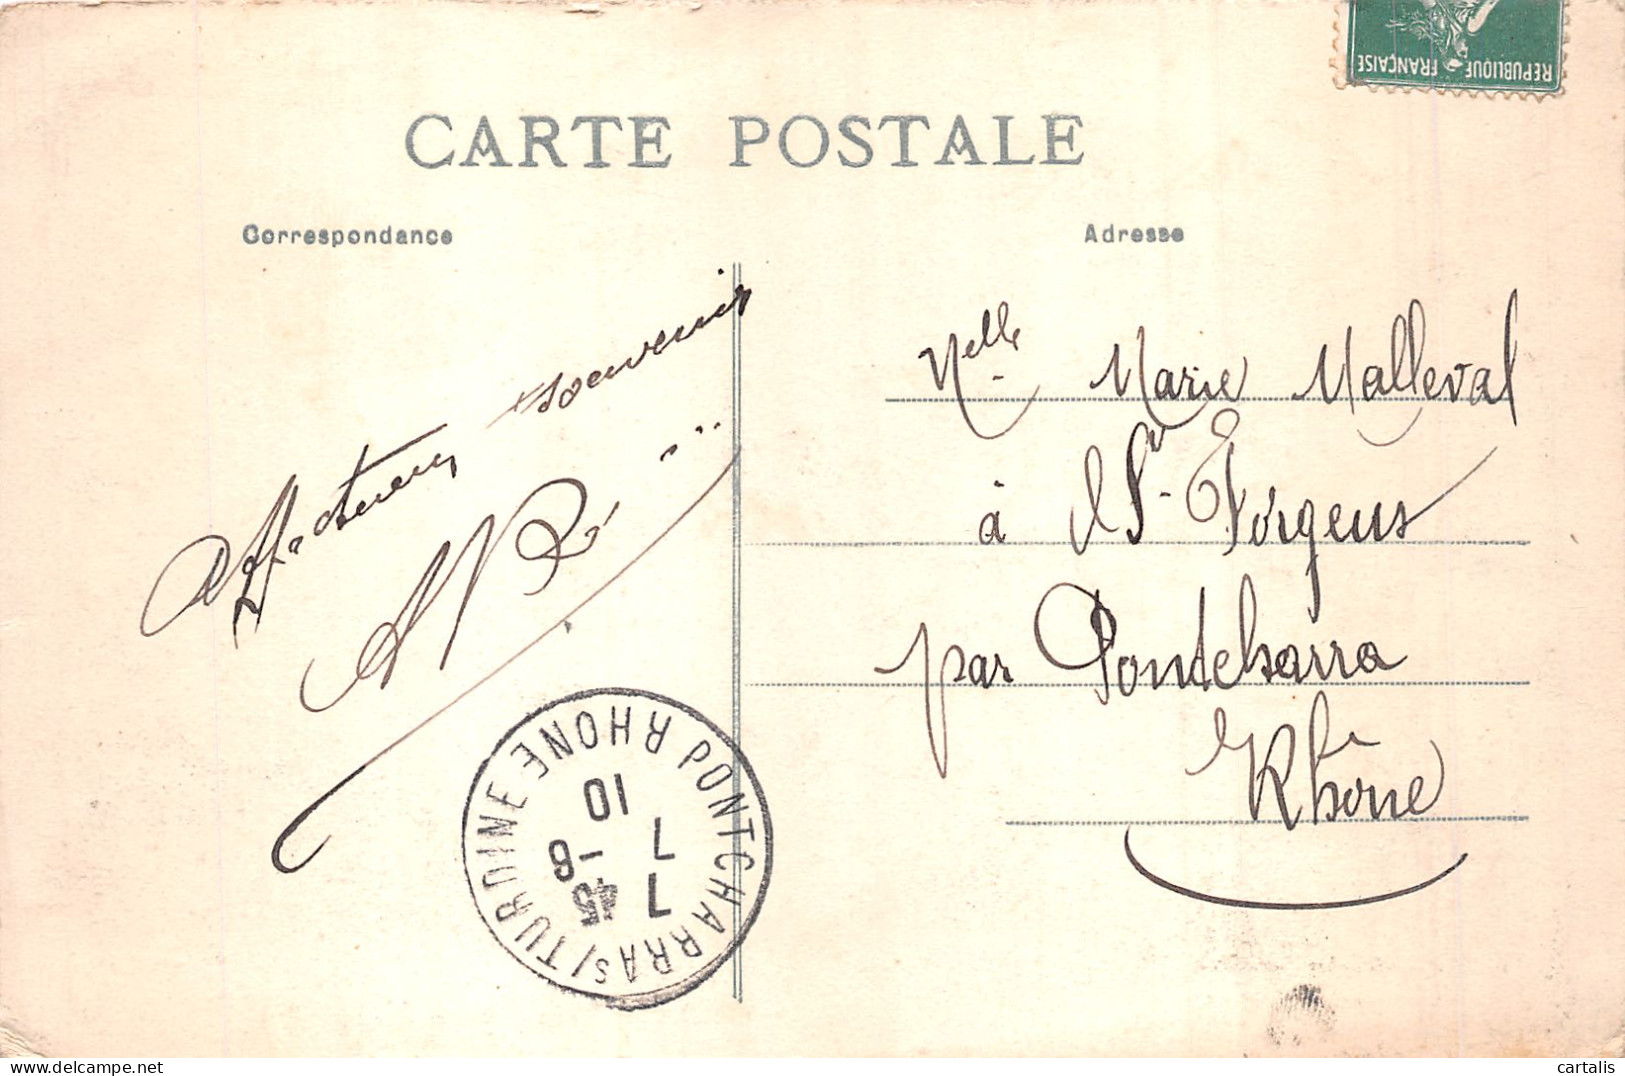 REPUBLIQUE FRANÇAISE
CARTE POSTALE
Correspondance
Adresse
Affectueux souvenir
AR
Melle Marie Malleval
à St-Forgeux
par Pontcharra
Rhône
PONTCHARRA S/TURDINE RHONE
7 7 10
7 45
cartalis